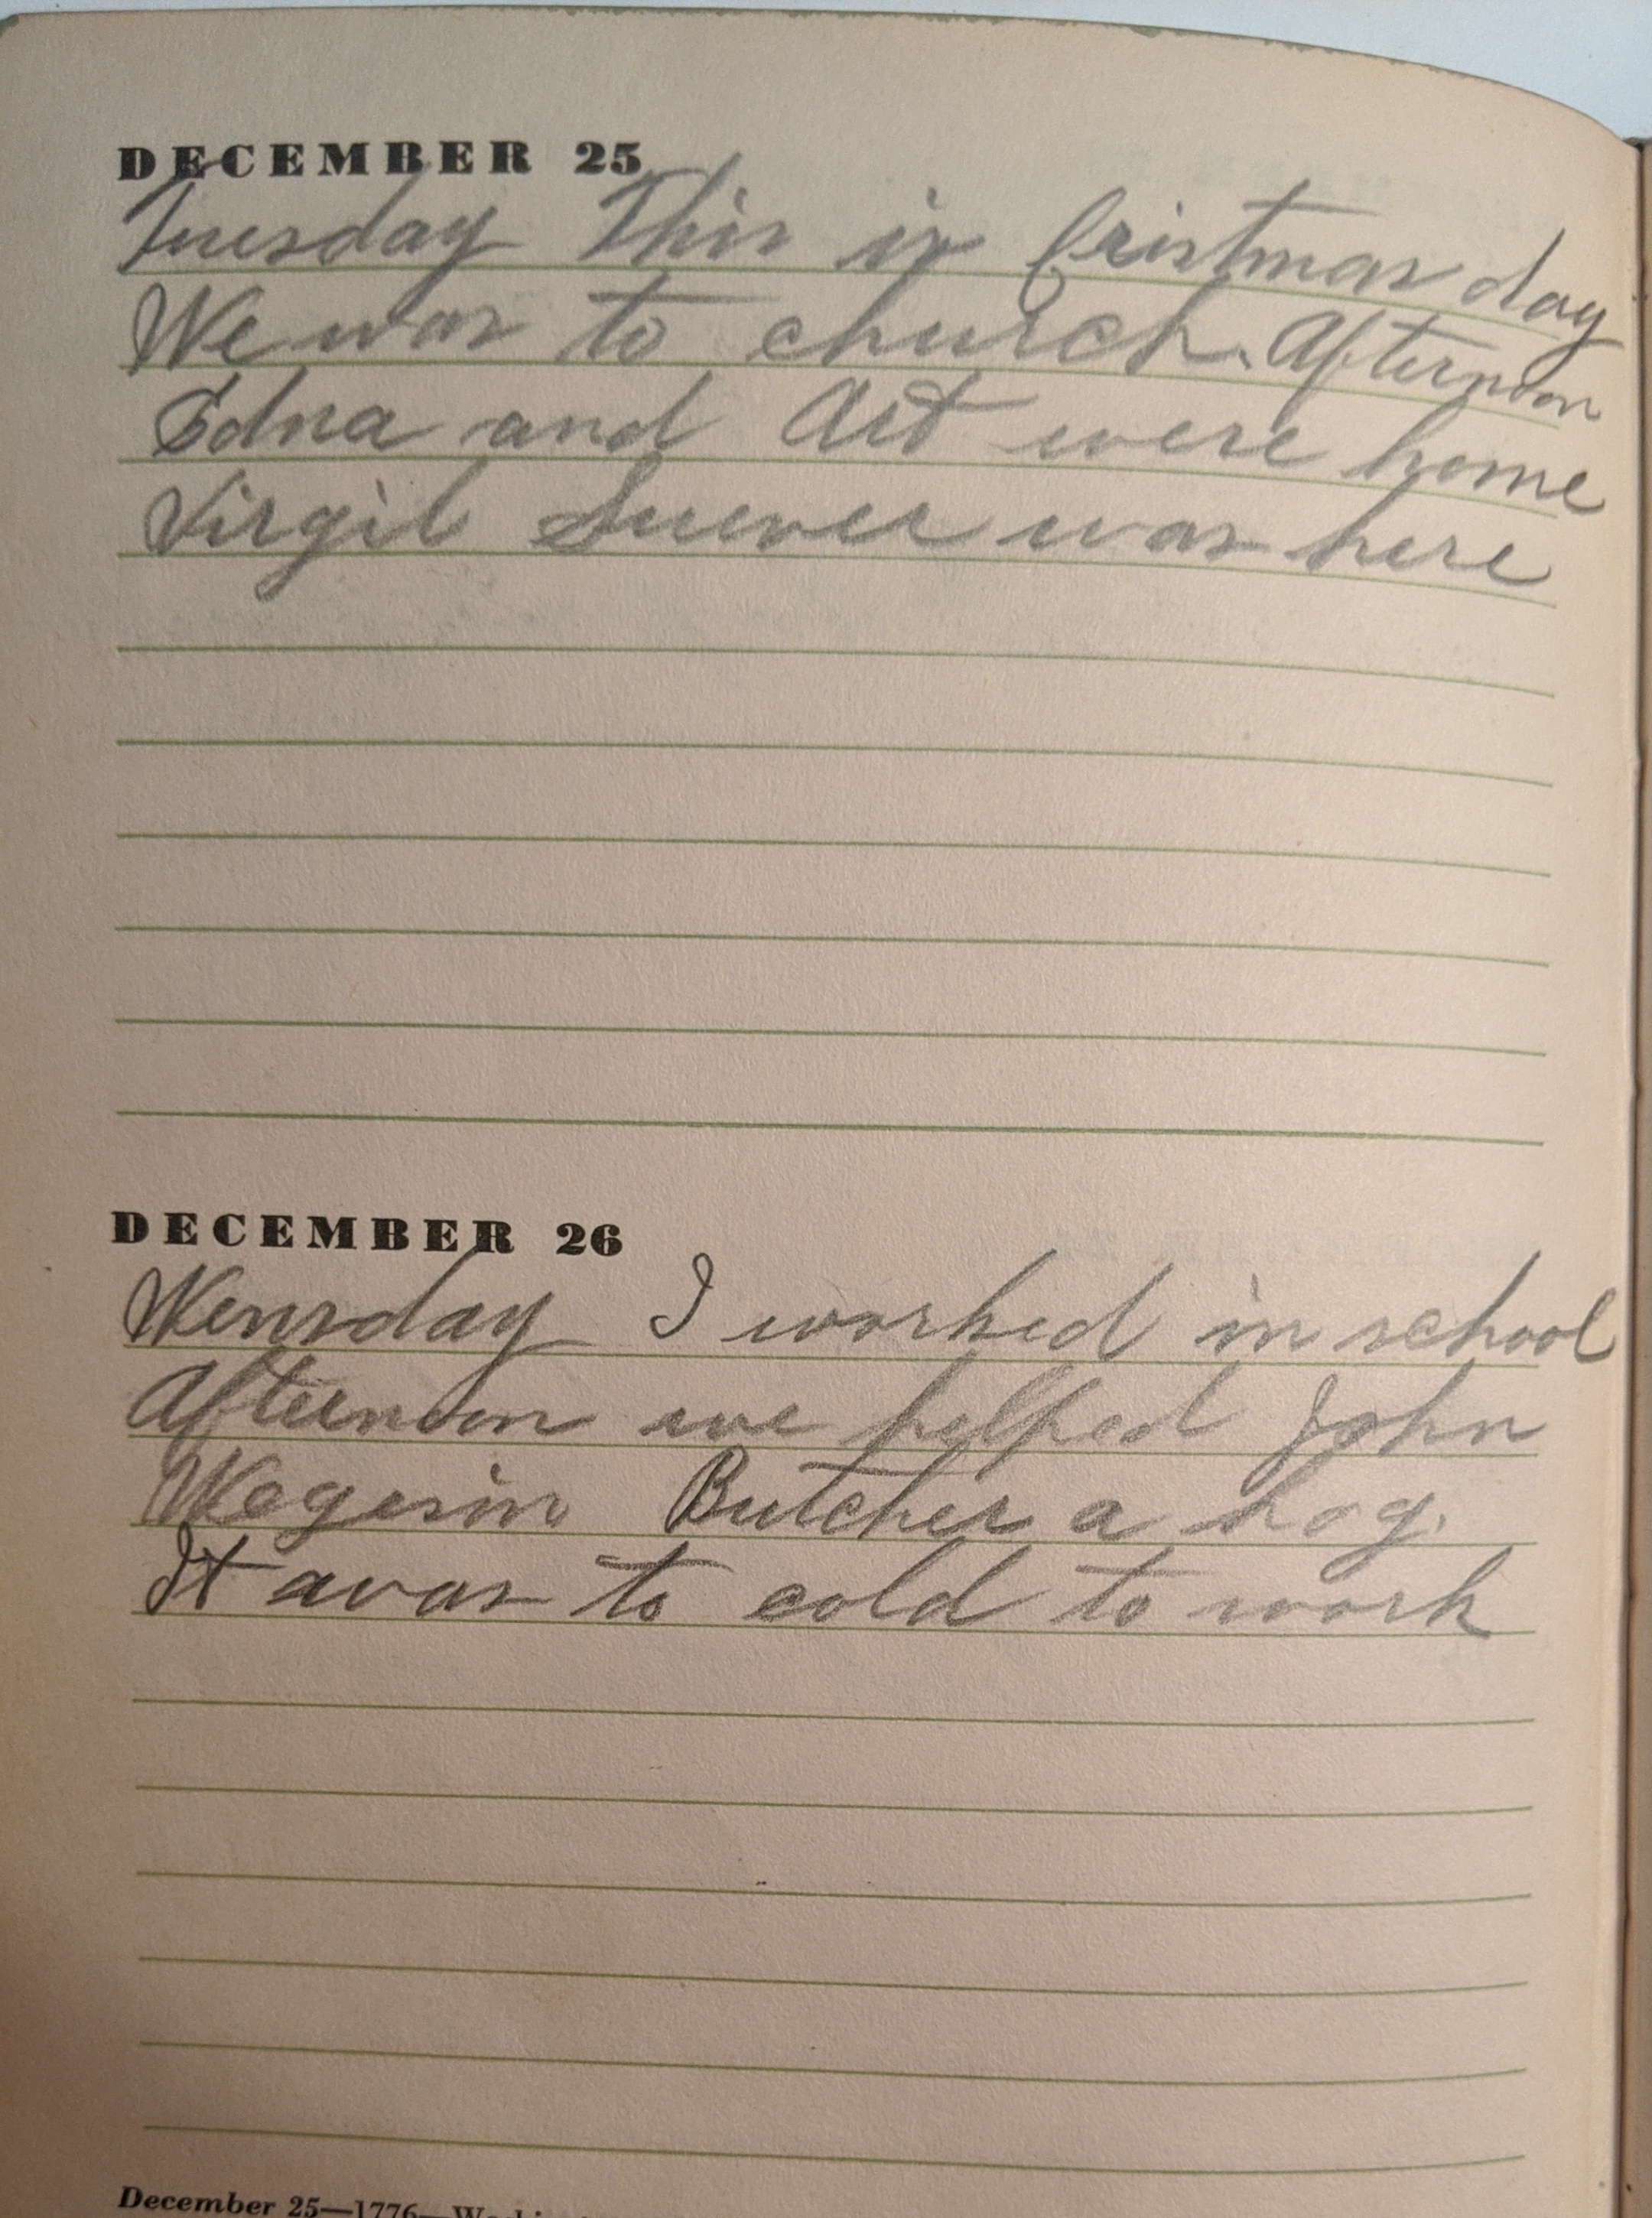 DECEMBER 25
Tuesday This is Cristmas day
We was to church. Afternoon
Edna and Art were home
Virgil Suever was here
DECEMBER 26
Wensday I worked in school
Afternoon we helped John
Wegesin Butcher a hog.
It was to cold to work
December 25—1776—